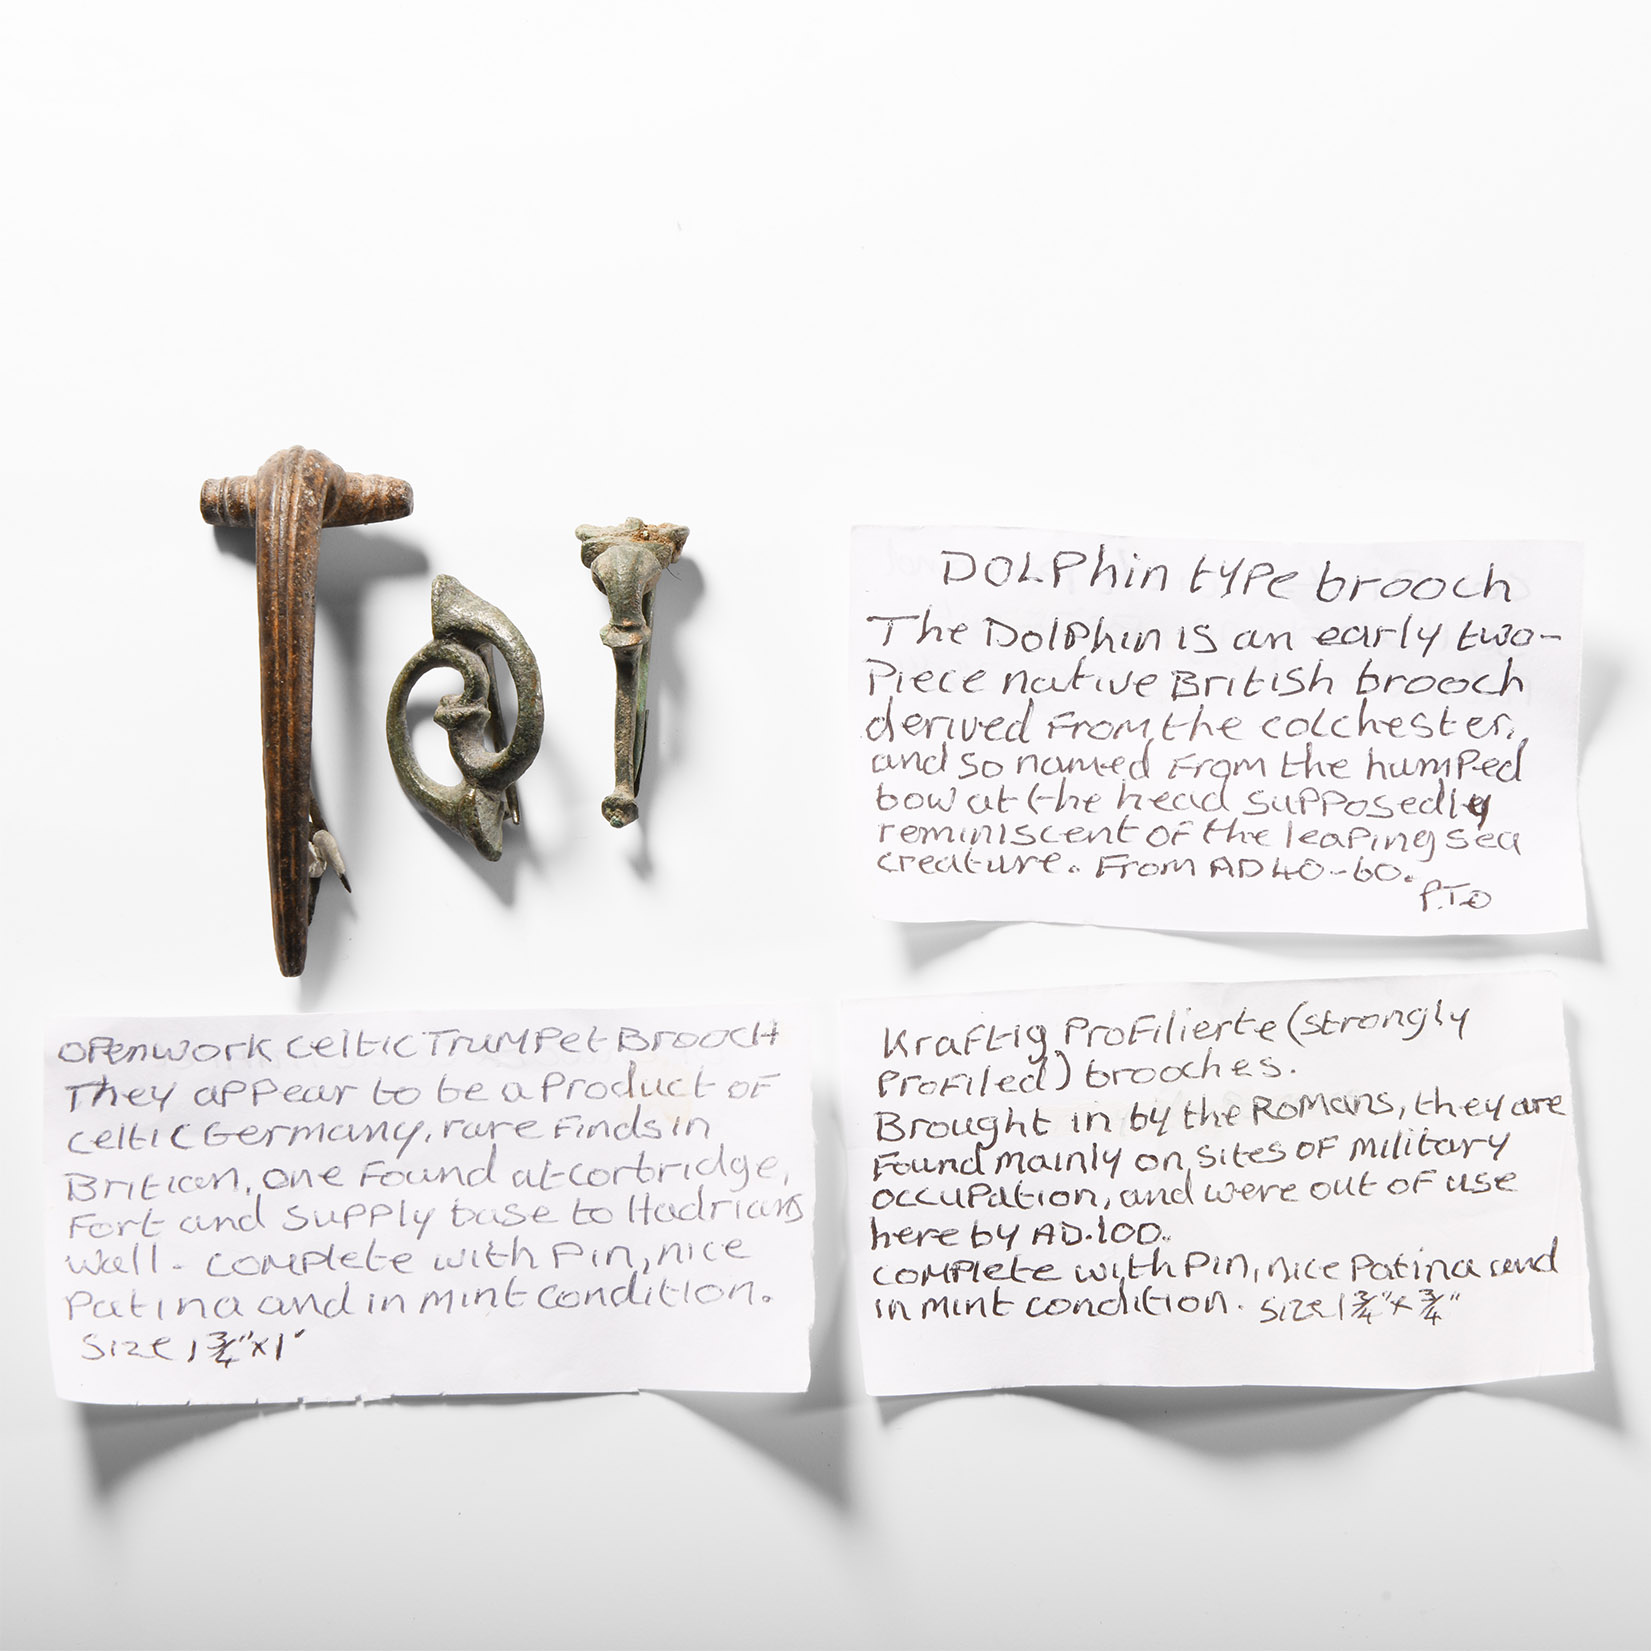 DOLPhin type brooch
The Dolphin is an early two-
Piece native British brooch
derived from the colchester,
and so named from the humped
bow at the head supposedly
reminiscent of the leaping sea
creature. From AD 40-60.
P.T.O
openwork celtic Trumpet Brooch
They appear to be a product of
celtic Germany, rare finds in
Britian, one found at corbridge,
fort and supply base to Hadrians
wall. complete with pin, nice
patina and in mint condition.
Size 1 3/4" x 1"
Kraftig Profilierte (strongly
Profiled) brooches.
Brought in by the Romans, they are
found mainly on sites of military
occupation, and were out of use
here by AD.100.
complete with pin, nice patina and
in mint condition. Size 1 3/4" x 3/4"